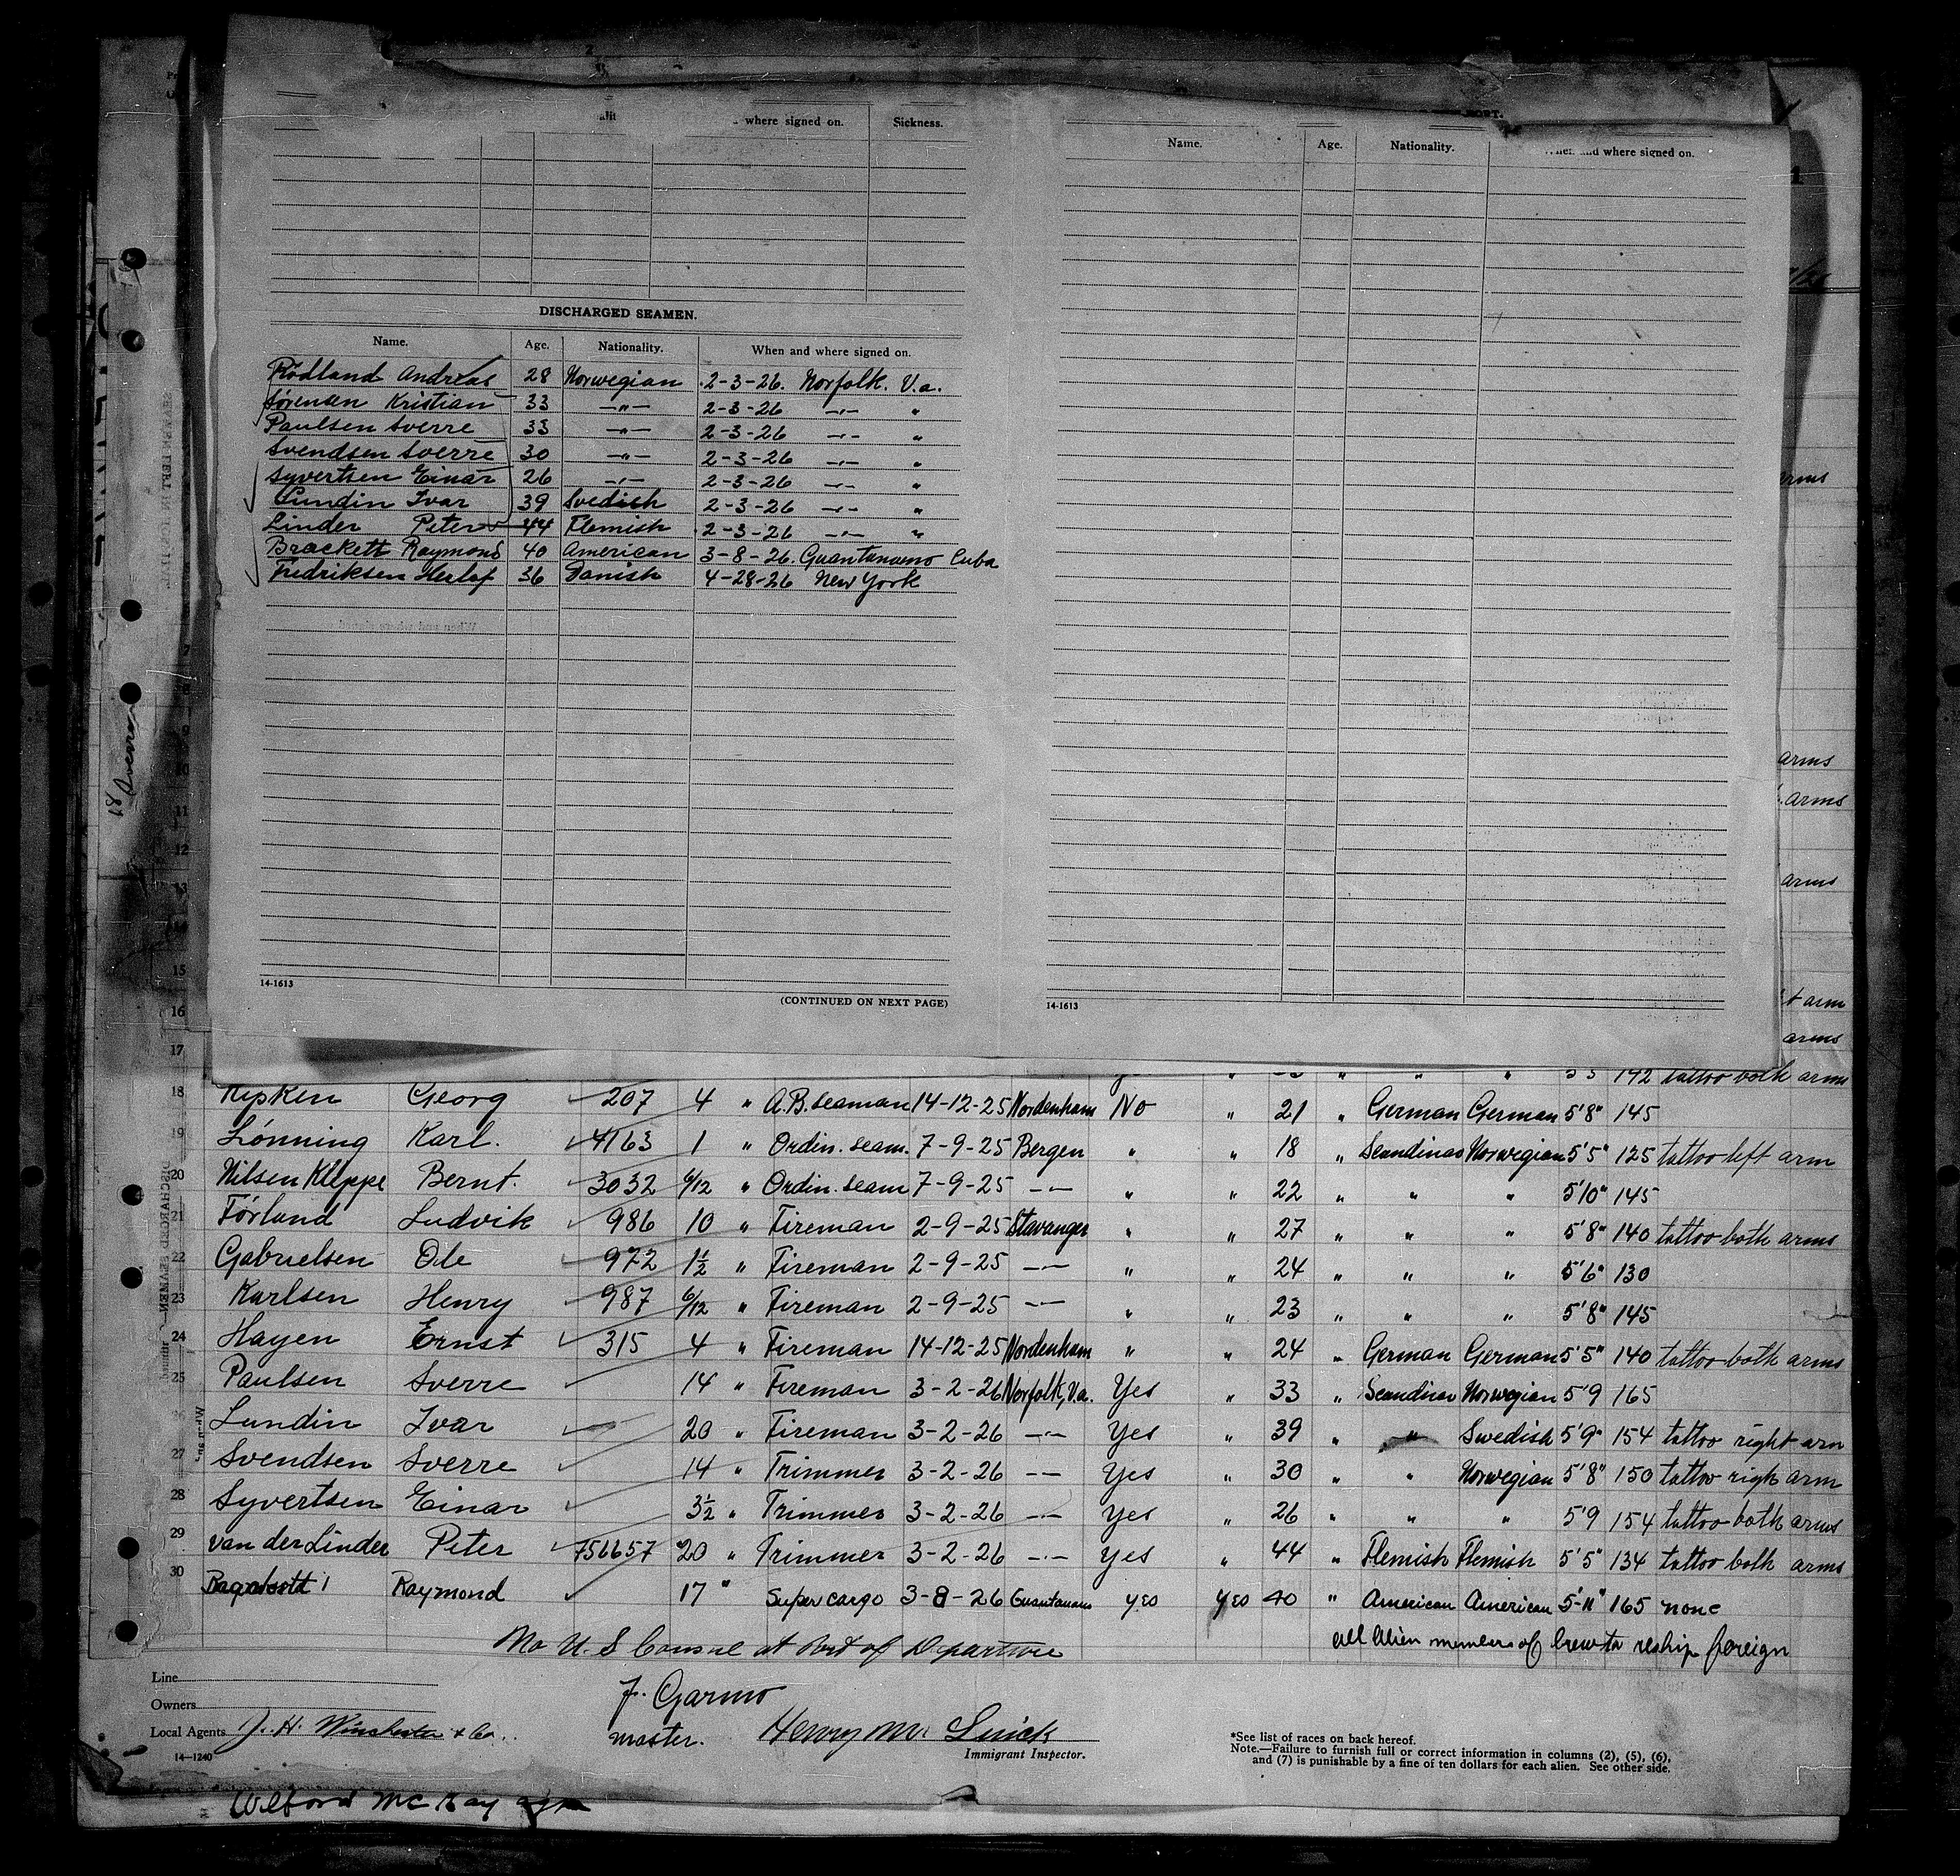 where signed on. Sickness.
DISCHARGED SEAMEN.
Name. Age. Nationality. When and where signed on.
Rødland Andreas 28 Norwegian 2-3-26. Norfolk. V.a.
Sørensen Kristian 33 —"— 2-3-26 —"— "
Paulsen Sverre 33 —"— 2-3-26 —"— "
Svendsen Sverre 30 —"— 2-3-26 —"— "
Syvertsen Einar 26 —"— 2-3-26 —"— "
Lundin Ivar 39 Svedish 2-3-26 —"— "
Linder Peter 44 Flemish 2-3-26 —"— "
Brackett Raymond 40 American 3-8-26. Guantanamo Cuba
Fredriksen Herlof 36 Danish 4-28-26 New York
14-1613
(CONTINUED ON NEXT PAGE)
Name. Age. Nationality. When and where signed on.
14-1613
arms
arms
arms
arms
arm
arms
7
8
9
10
11
12
13
14
15
16
17 192 tattoo both arms
18 Kipken Georg 207 4 " A.B. seaman 14-12-25 Nordenham No " 21 " German German 5'8" 145
19 Lønning Karl. 4163 1 " Ordin. seam. 7-9-25 Bergen " " 18 " Scandinav Norwegian 5'5" 125 tattoo left arm
20 Nilsen Kleppe Bernt. 3032 6/12 " Ordin. seam 7-9-25 —"— " " 22 " " " 5'10" 145
21 Førland Ludvik 986 10 " Fireman 2-9-25 Stavanger " " 27 " " " 5'8" 140 tattoo both arms
22 Gabrielsen Ole 972 1½ " Fireman 2-9-25 —"— " " 24 " " " 5'6" 130
23 Karlsen Henry 987 6/12 " Fireman 2-9-25 —"— " " 23 " " " 5'8" 145
24 Hayen Ernst 315 4 " Fireman 14-12-25 Nordenham " " 24 " German German 5'5" 140 tattoo both arms
25 Paulsen Sverre 14 " Fireman 3-2-26 Norfolk, V.a. Yes " 33 " Scandinav Norwegian 5'9 165
26 Lundin Ivar 20 " Fireman 3-2-26 —"— Yes " 39 " " Swedish 5'9" 154 tattoo right arm
27 Svendsen Sverre 14 " Trimmer 3-2-26 —"— Yes " 30 " " Norwegian 5'8" 150 tattoo righ arm
28 Syvertsen Einar 3½ " Trimmer 3-2-26 —"— Yes " 26 " " " 5'9 154 tattoo both arms
29 van der Linder Peter 756657 20 " Trimmer 3-2-26 —"— Yes " 44 " Flemish Flemish 5'5" 134 tattoo both arms
30 Raymond 17 " Super cargo 3-8-26 Guantanamo yes yes 40 " American American 5'-11" 165 none
No U.S Consul at Port of Departure
all alien members of crew to reship foreign
Line
Owners
Local Agents J. H. Winchester & Co.
14—1240
J. Garmo
master.
Henry M.
Immigrant Inspector.
*See list of races on back hereof.
Note.—Failure to furnish full or correct information in columns (2), (5), (6),
and (7) is punishable by a fine of ten dollars for each alien. See other side.
Wilford McKay